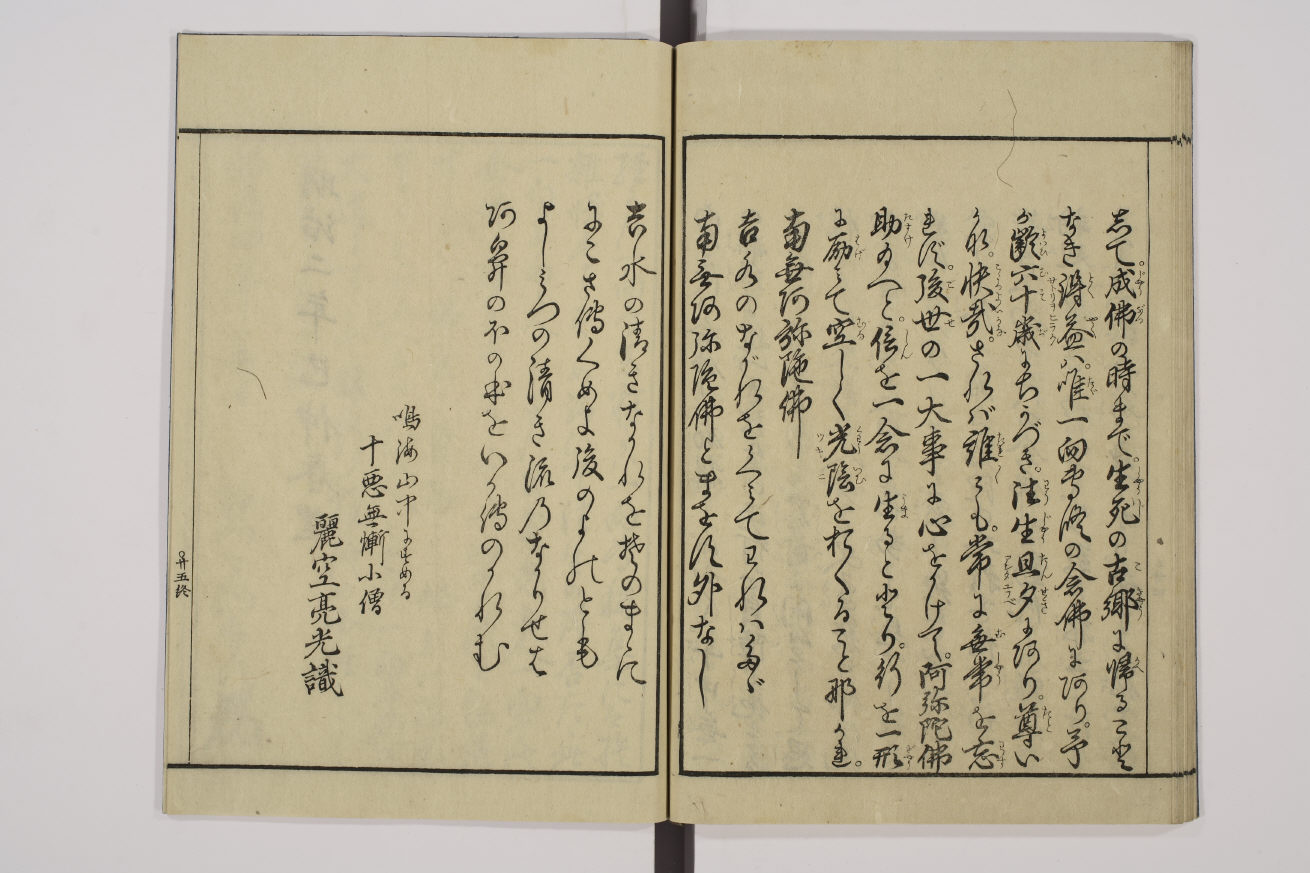 志て成佛の時まで生死の古郷に帰ること
なき得益ハ唯一向専修の念佛にあり予
が齢六十歳にちかづき往生旦夕にあり尊い
かな快哉されバ誰々も常に無常を忘
れず後世の一大事に心をかけて阿弥陀佛
助給へと信を一念に生ると取り行を一形
に励みて空しく光陰を於くること那かれ
南無阿弥陀佛
吉水のながれをくみてわれハたゞ
南無阿弥陀佛とまをす外なし
吉水の清きながれをそのまゝに
にごさ傳くめよ後のよの人とも
よしみづの清き流乃なかりせば
阿鼻のほのほをいかでのがれむ
鳴海山中にすめる
十悪無慚小僧
麗空亮光識
廿五終